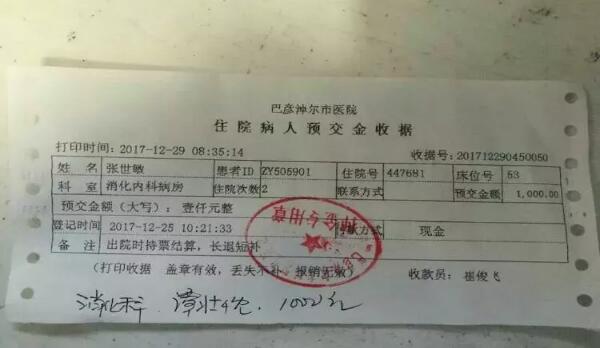 巴彦淖尔市医院
住院病人预交金收据
打印时间:2017-12-29 08:35:14 收据号:201712290450050
姓名 张世敏 患者ID ZY505901 住院号 447681 床位号 53
科室 消化内科病房 住院次数 2 联系方式 预交金额 1,000.00
预交金额(大写): 壹仟元整
登记时间 2017-12-25 10:21:33 付款方式 现金
备注 出院时持票结算,长退短补
(打印收据 盖章有效,丢失不补,报销无效) 收款员: 崔俊飞
押金专用章
消化科 1000元